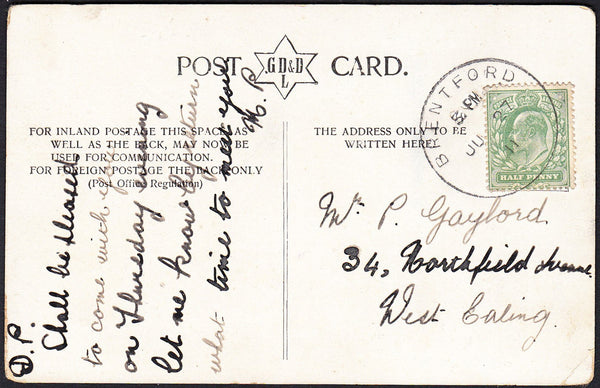 POST CARD.
G D & D
L
FOR INLAND POSTAGE THIS SPACE, AS
WELL AS THE BACK, MAY NOW BE
USED FOR COMMUNICATION.
FOR FOREIGN POSTAGE THE BACK ONLY
(Post Office Regulation)
THE ADDRESS ONLY TO BE
WRITTEN HERE.
BRENTFORD
8 PM
JU 27
11
HALF PENNY
Mr P. Gayford
34, Northfield Avenue
West Ealing.
D. P.
Shall be pleased
to come with you
on Thursday evening
let me know by return
what time to meet you
H. P.